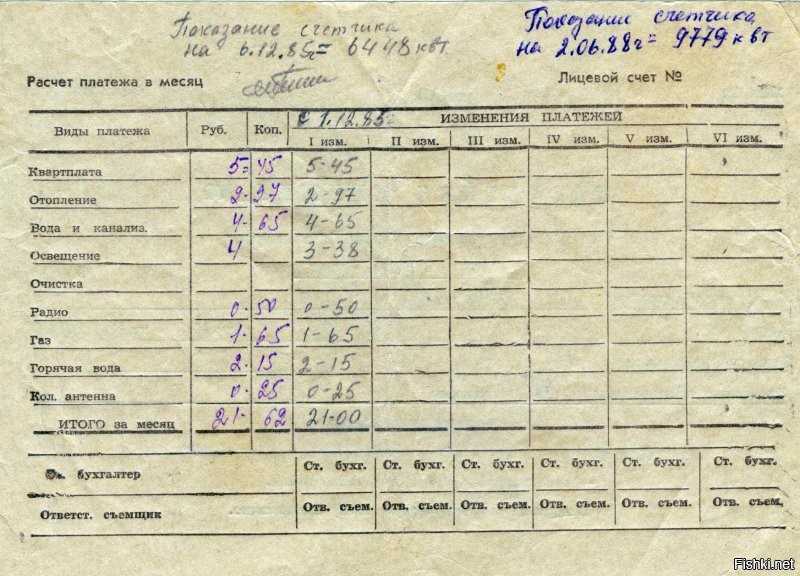 Показание счетчика
на 6.12.85г= 6448 квт
Показание счетчика
на 2.06.88г= 9779 квт
Расчет платежа в месяц
Лицевой счет №
Виды платежа Руб. Коп. С 1.12.85г ИЗМЕНЕНИЯ ПЛАТЕЖЕЙ
I изм. II изм. III изм. IV изм. V изм. VI изм.
Квартплата 5=45 5-45
Отопление 2-97 2-97
Вода и канализ. 4-65 4-65
Освещение 4 3-38
Очистка
Радио 0-50 0-50
Газ 1-65 1-65
Горячая вода 2-15 2-15
Кол. антенна 0-25 0-25
ИТОГО за месяц 21-62 21-00
бухгалтер Ст. бухг. Ст. бухг. Ст. бухг. Ст. бухг. Ст. бухг. Ст. бухг.
Ответст. съемщик Отв. съем. Отв. съем. Отв. съем. Отв. съем. Отв. съем. Отв. съем.
Fishki.net